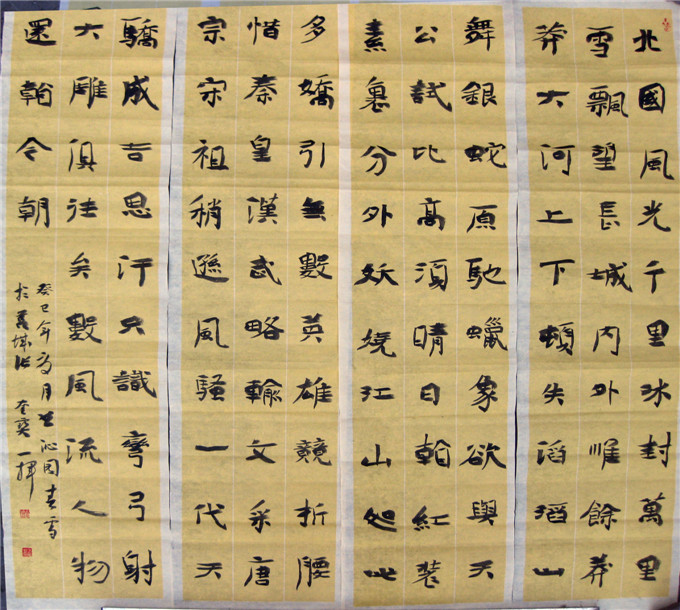 北國風光千里冰封萬里
雪飄望長城內外惟餘莽
莽大河上下頓失滔滔山
舞銀蛇原馳蠟象欲與天
公試比高須晴日看紅裝
素裹分外妖嬈江山如此
多嬌引無數英雄競折腰
惜秦皇漢武略輸文采唐
宗宋祖稍遜風騷一代天
驕成吉思汗只識彎弓射
大雕俱往矣數風流人物
還看今朝
癸巳年月书沁园春雪
於一揮